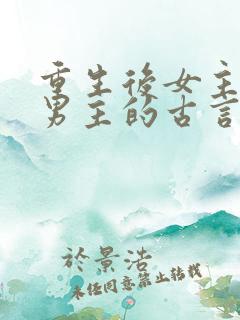 重生後女主
男主的古言
於景浩
未經同意禁止轉載